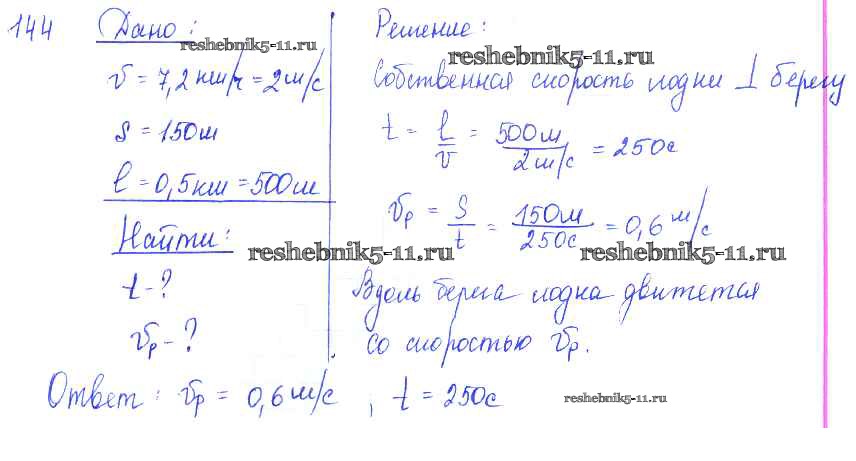 144 Дано:
reshebnik5-11.ru
v = 7,2 км/ч = 2 м/с
s = 150 м
l = 0,5 км = 500 м
Найти:
reshebnik5-11.ru
t - ?
vр - ?
Решение:
reshebnik5-11.ru
Собственная скорость лодки ⊥ берегу
t = l/v = 500 м / 2 м/с = 250 с
vр = s/t = 150 м / 250 с = 0,6 м/с
reshebnik5-11.ru
Вдоль берега лодка движется
со скоростью vр.
Ответ: vр = 0,6 м/с, t = 250 с
reshebnik5-11.ru